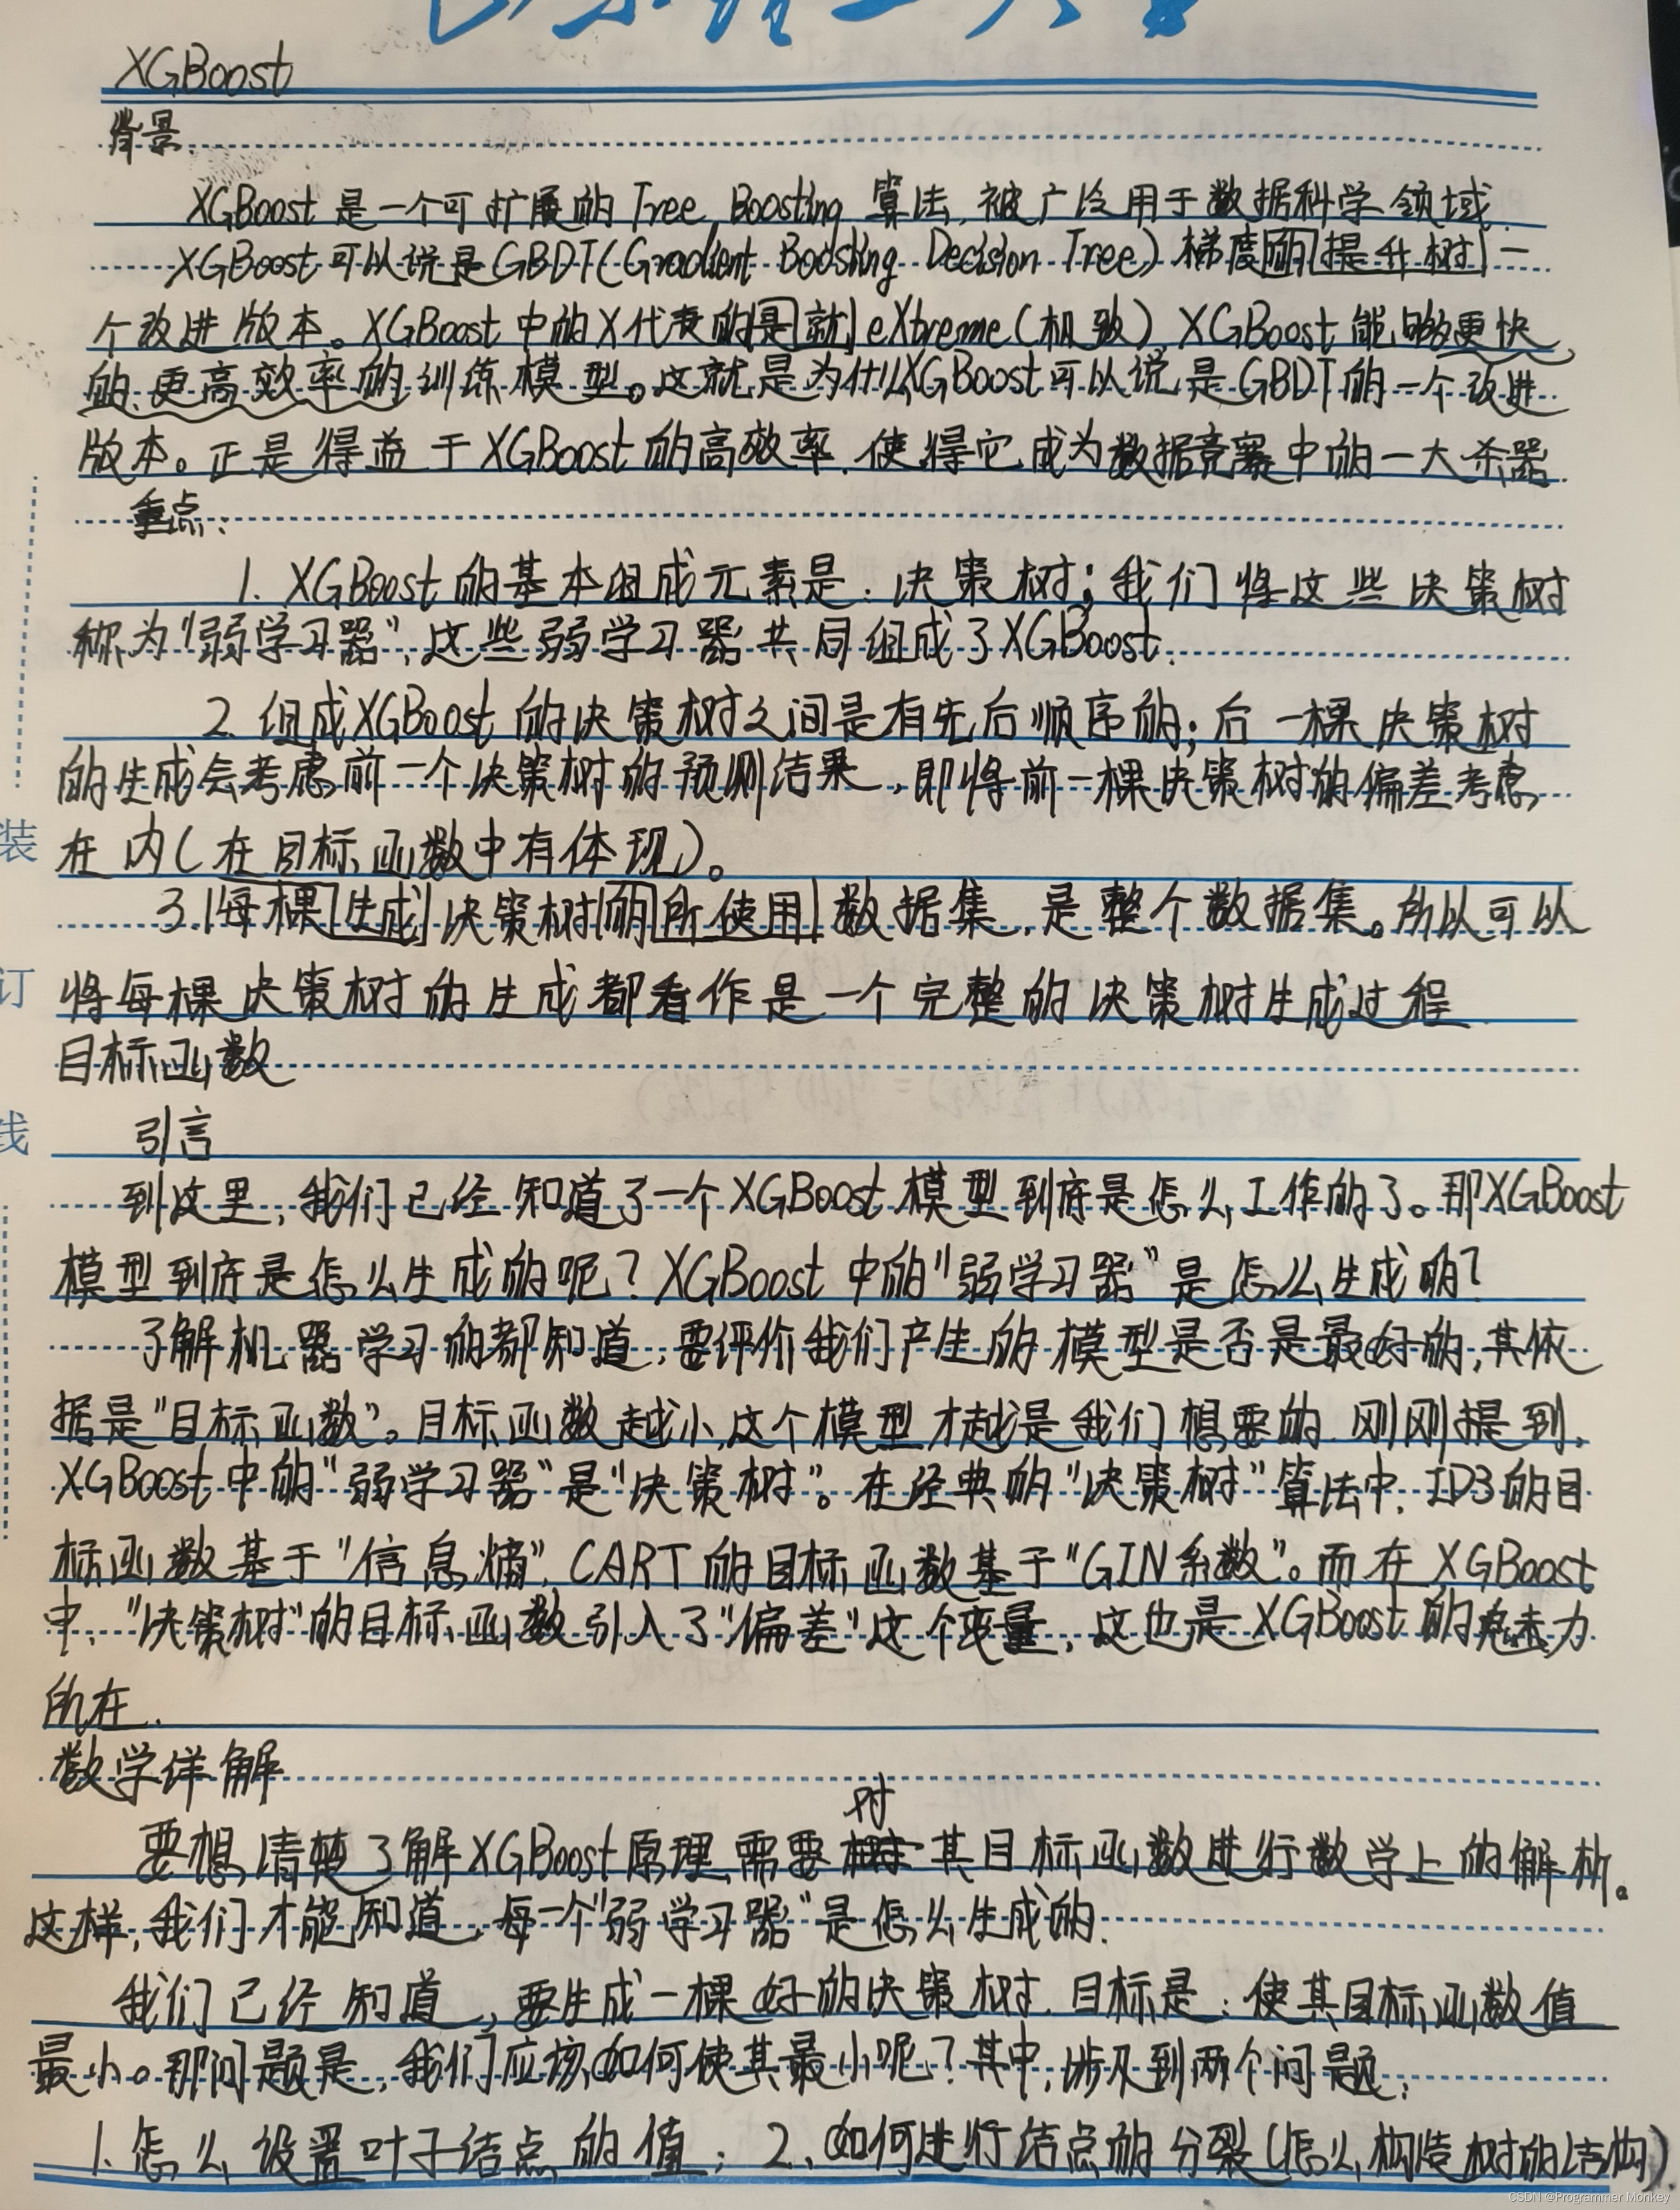 XGBoost
背景
XGBoost是一个可扩展的Tree Boosting算法,被广泛用于数据科学领域.
XGBoost可以说是GBDT(Gradient Boosting Decision Tree)梯度的提升树一
个改进版本。XGBoost中的X代表的是就eXtreme(极致),XGBoost能够更快
的、更高效率的训练模型。这就是为什么XGBoost可以说是GBDT的一个改进
版本。正是得益于XGBoost的高效率,使得它成为数据竞赛中的一大杀器.
重点:
1. XGBoost的基本组成元素是:决策树;我们将这些决策树
称为“弱学习器”,这些弱学习器共同组成了XGBoost.
2. 组成XGBoost的决策树之间是有先后顺序的;后一棵决策树
的生成会考虑前一个决策树的预测结果,即将前一棵决策树的偏差考虑
在内(在目标函数中有体现)。
3. 每棵生成决策树的所使用数据集,是整个数据集。所以可以
将每棵决策树的生成都看作是一个完整的决策树生成过程
目标函数
引言
到这里,我们已经知道了一个XGBoost模型到底是怎么工作的了。那XGBoost
模型到底是怎么生成的呢?XGBoost中的“弱学习器”是怎么生成的?
了解机器学习的都知道,要评价我们产生的模型是否是最好的,其依
据是“目标函数”。目标函数越小,这个模型才越是我们想要的.刚刚提到,
XGBoost中的“弱学习器”是“决策树”。在经典的“决策树”算法中,ID3的目
标函数基于“信息熵”,CART的目标函数基于“GIN系数”。而在XGBoost
中,“决策树”的目标函数引入了“偏差”这个变量,这也是XGBoost的魅力
所在.
数学详解
要想清楚了解XGBoost原理,需要对其目标函数进行数学上的解析。
这样,我们才能知道,每一个“弱学习器”是怎么生成的.
我们已经知道,要生成一棵好的决策树.目标是:使其目标函数值
最小。那问题是,我们应该如何使其最小呢?其中,涉及到两个问题:
1.怎么设置叶子结点的值;2、如何进行结点的分裂(怎么构造树的结构)
装
订
线
CSDN @Programmer Monkey